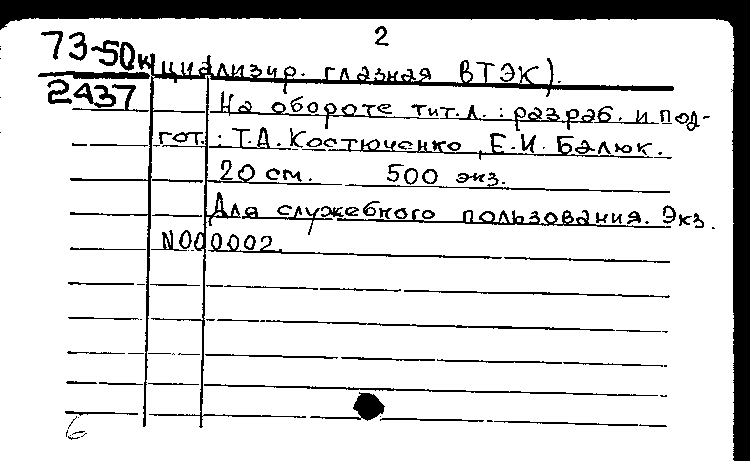 2
73-50к
2437
циализир. глазная ВТЭК).
На обороте тит.л.: разраб. и под-
гот.: Т.А. Костюченко, Е.И. Балюк.
20 см. 500 экз.
Для служебного пользования. Экз.
N000002.
6